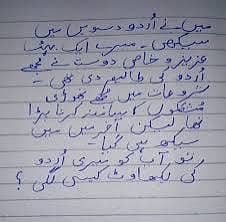 میں نے اُردو دسویں میں
سیکھی۔ میرے ایک بہت
عزیز و خاص دوست نے مجھے
اُردو کی طالیم دی تھی۔
شروعات میں مجھے تھوڑی
مشکلوں کا سامنا کرنا پڑا
تھا لیکن آخر میں میں
سیکھ ہی گیا۔
تو آپ کو میری اُردو
کی لکھاوٹ کیسی لگی ؟